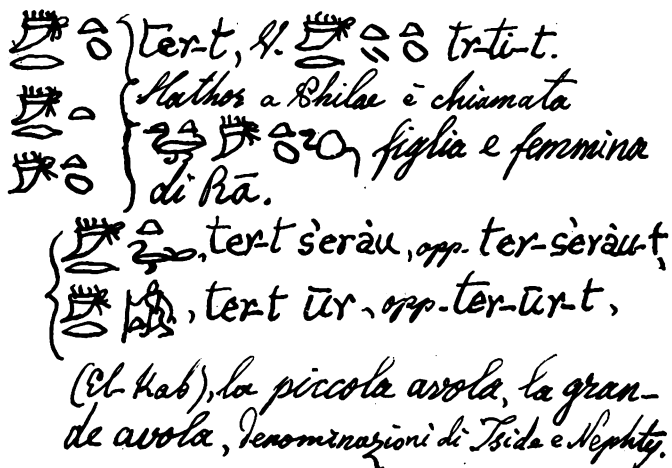 ter-t, V. tr-ti-t.
Hathor a Philae è chiamata
figlia e femmina
di Rā.
ter-t šeràu, opp. ter-šeràu-t,
ter-t ūr, opp. ter-ūr-t,
(El-Kab), la piccola avola, la gran-
de avola, denominazioni di Iside e Nephty.